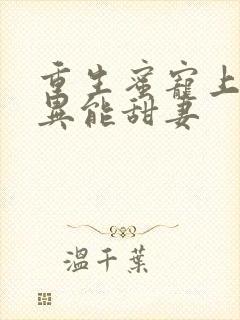 重生蜜寵上
異能甜妻
溫千葉